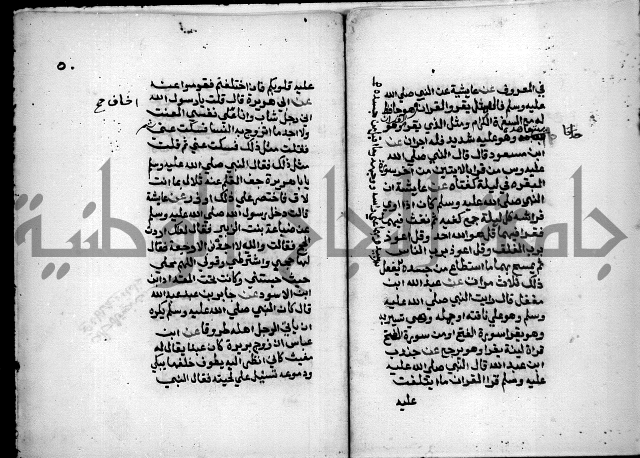 في المعروف عن عايشة عن النبي صلى الله
عليه وسلم قال مثل الذي يقرو القران وهو حافظ
له مع السفرة الكرام ومثل الذي يقرو وهو
يتعاهده وهو عليه شديد فله اجران عن
ابن مسعود قال قال النبي صلى الله
عليه وسلم من قرا بالايتين من اخر سورة
البقره في ليلة كفتاه عن عايشة ان
النبي صلى الله عليه وسلم كان اذا اوى الى
فراشه كل ليلة جمع كفيه ثم نفث فيهما
فقرا فيهما قل هو الله احد وقل اعوذ
برب الفلق وقل اعوذ برب الناس
ثم يمسح بهما ما استطاع من جسده يفعل
ذلك ثلاث مرات عن عبد الله ابن
مغفل قال رايت النبي صلى الله عليه
وسلم وهو على ناقته او جمله وهي تسير به
وهو يقرا سورة الفتح او من سورة الفتح
قراة لينة يقرا وهو يرجع عن جندب
ابن عبد الله قال النبي صلى الله عليه
عليه وسلم قروا القران ما ايتلفت
عليه
٥٠
عليه قلوبكم فاذا اختلفتم فقوموا عنه
عن ابي هريرة قال قلت يا رسول الله
اني رجل شاب وانا على نفسي العنت
اخاف صح
ولا اجد ما اتزوج به النسا فسكت عني
فقلت مثل ذلك فسكت عني ثم قلت
مثل ذلك فقال النبي صلى الله عليه وسلم
يا ابا هريرة جف القلم عنك لاق بما انت
لاق فاختصر على ذلك او ذر عن عايشة
قالت دخل رسول الله صلى الله عليه وسلم
على ضباعة بنت الزبير فقال لعلك اردت
الحج فقالت والله لا اجدني الا وجعة فقال
لها حجي واشترطي وقولي اللهم محلي
حيث حبستني وكانت تحت المقداد ابن
الاسود عن جابر بن عبد الله
قال كان النبي صلى الله عليه وسلم يكره
ان ياتي الرجل اهله طروقا عن ابن
عباس ان زوج بريرة كان عبدا يقال له
مغيث كاني انظر اليه يطوف خلفها يبكي
ودموعه تسيل على لحيته فقال النبي
جامعة النجاح الوطنية